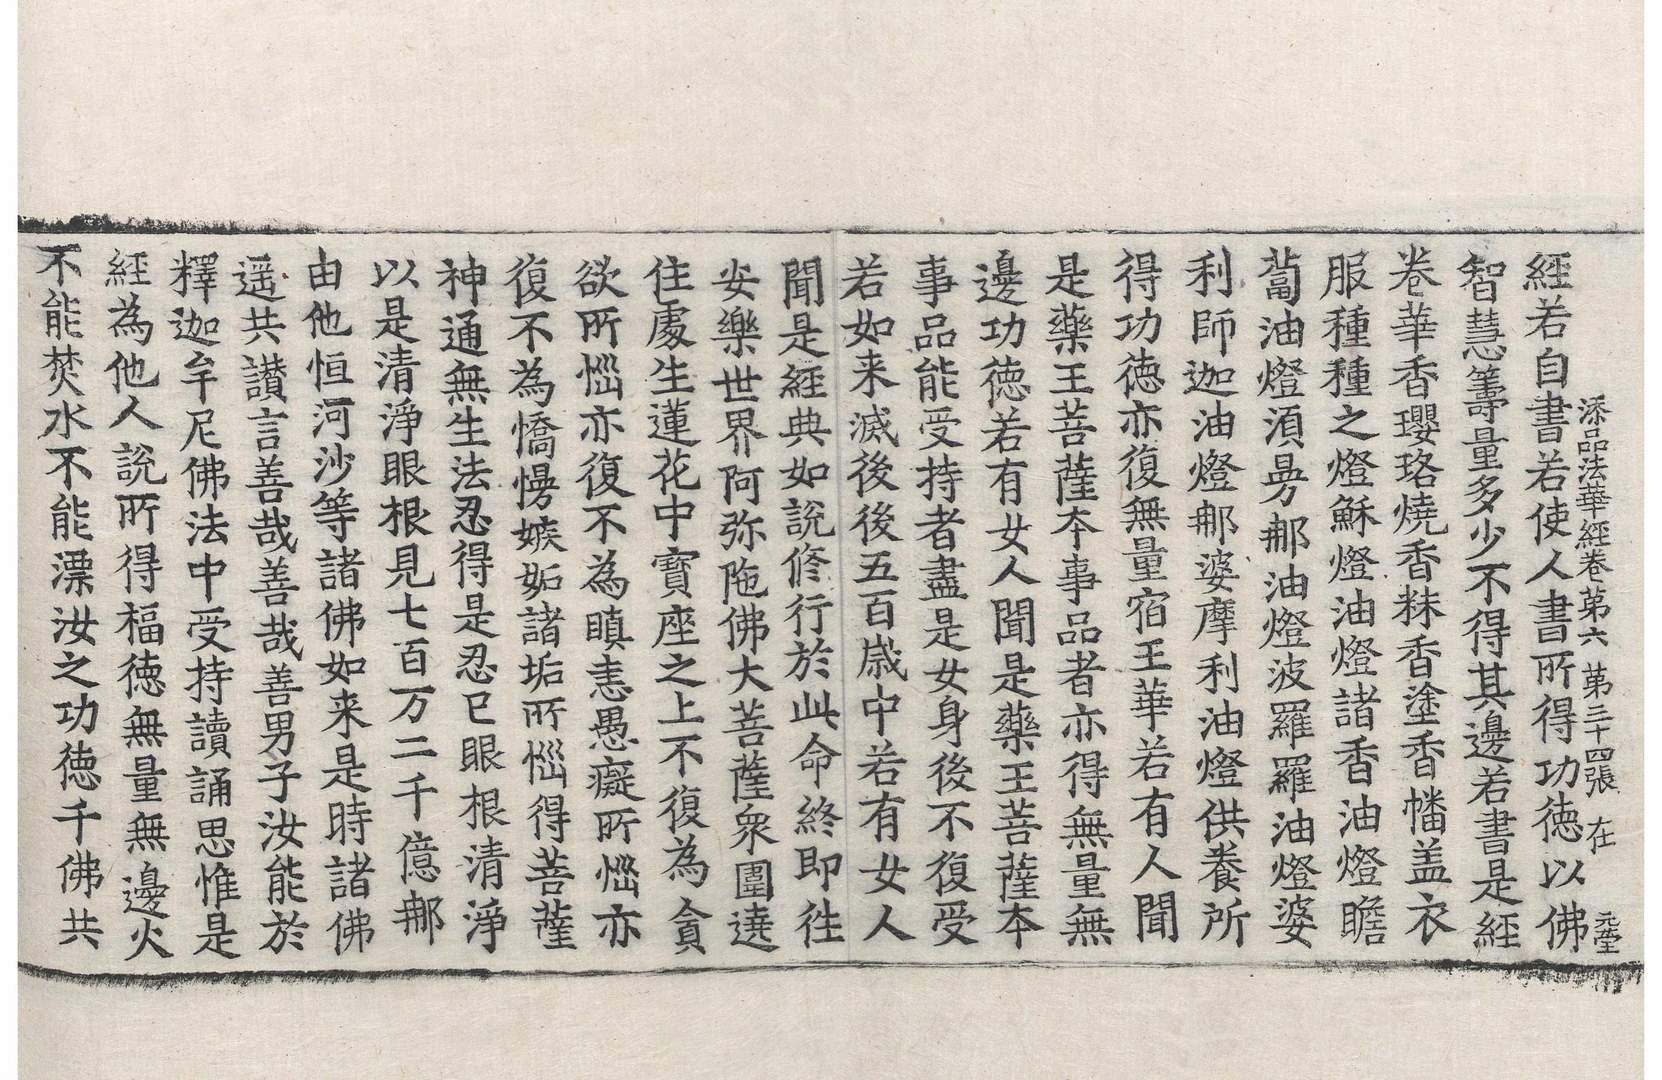 添品法華經卷第六 第三十四張 在
經若自書若使人書所得功德以佛
智慧籌量多少不得其邊若書是經
卷華香瓔珞燒香粖香塗香幡盖衣
服種種之燈穌燈油燈諸香油燈瞻
蔔油燈湏曼那油燈波羅羅油燈婆
利師迦油燈那婆摩利油燈供養所
得功德亦復無量宿王華若有人聞
是藥王菩薩本事品者亦得無量無
邊功德若有女人聞是藥王菩薩本
事品能受持者盡是女身後不復受
若如来滅後後五百歲中若有女人
聞是經典如說脩行於此命終即往
安樂世界阿弥陁佛大菩薩衆圍遶
住處生蓮花中寶座之上不復為貪
欲所惱亦復不為瞋恚愚癡所惱亦
復不為憍慢嫉妬諸垢所惱得菩薩
神通無生法忍得是忍已眼根清淨
以是清淨眼根見七百万二千億那
由他恒河沙等諸佛如来是時諸佛
遥共讃言善哉善哉善男子汝能於
釋迦牟尼佛法中受持讀誦思惟是
經為他人說所得福德無量無邊火
不能焚水不能漂汝之功德千佛共